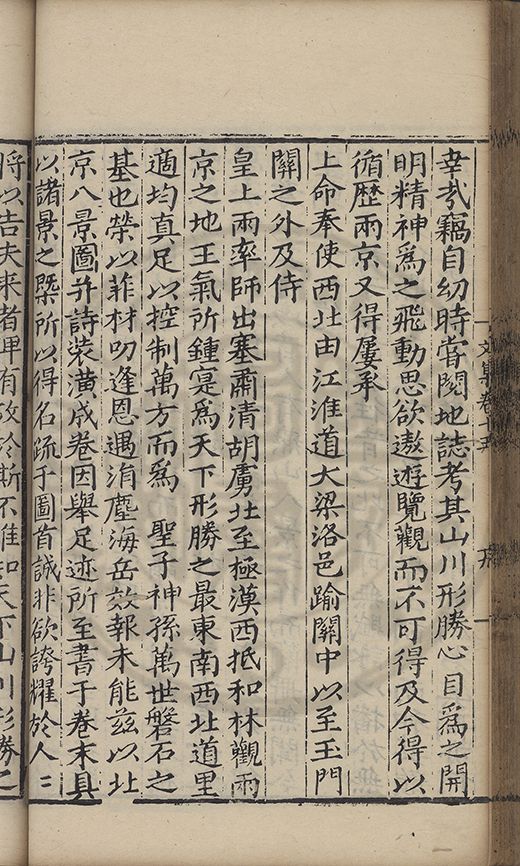 文集卷十五
幸㢤竊自幼時嘗閱地誌考其山川形勝心目爲之開
明精神爲之飛動思欲遨遊覽觀而不可得及今得以
循歷兩京又得屢承
上命奉使西北由江淮道大梁洛邑踰關中以至玉門
關之外及侍
皇上兩率師出塞肅清胡虜北至極漠西抵和林觀兩
京之地王氣所鍾寔爲天下形勝之最東南西北道里
適均真足以控制萬方而爲 聖子神孫萬世磐石之
基也榮以菲材叨逢恩遇涓塵海岳效報未能兹以北
京八景圖并詩裝潢成卷因舉足迹所至書于卷末具
以諸景之槩所以得名疏于圖首誠非欲誇耀於人二
將以告夫来者俾有攷於斯不惟知天下山川形勝之